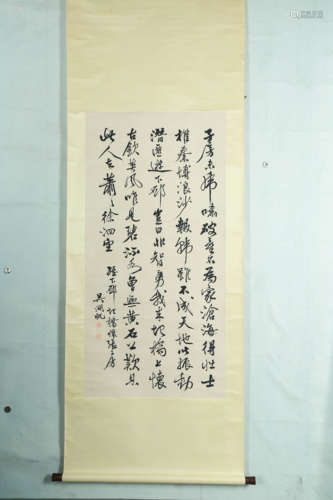 子房未虎嘯破產不為家滄海得壯士
椎秦博浪沙報韓雖不成天地皆振動
潛匿遊下邳豈曰非智勇我來圯橋上懷
古欽英風唯見碧流水曾無黃石公歎息
此人去蕭條徐泗空 經下邳圯橋懷張子房
吳湖帆